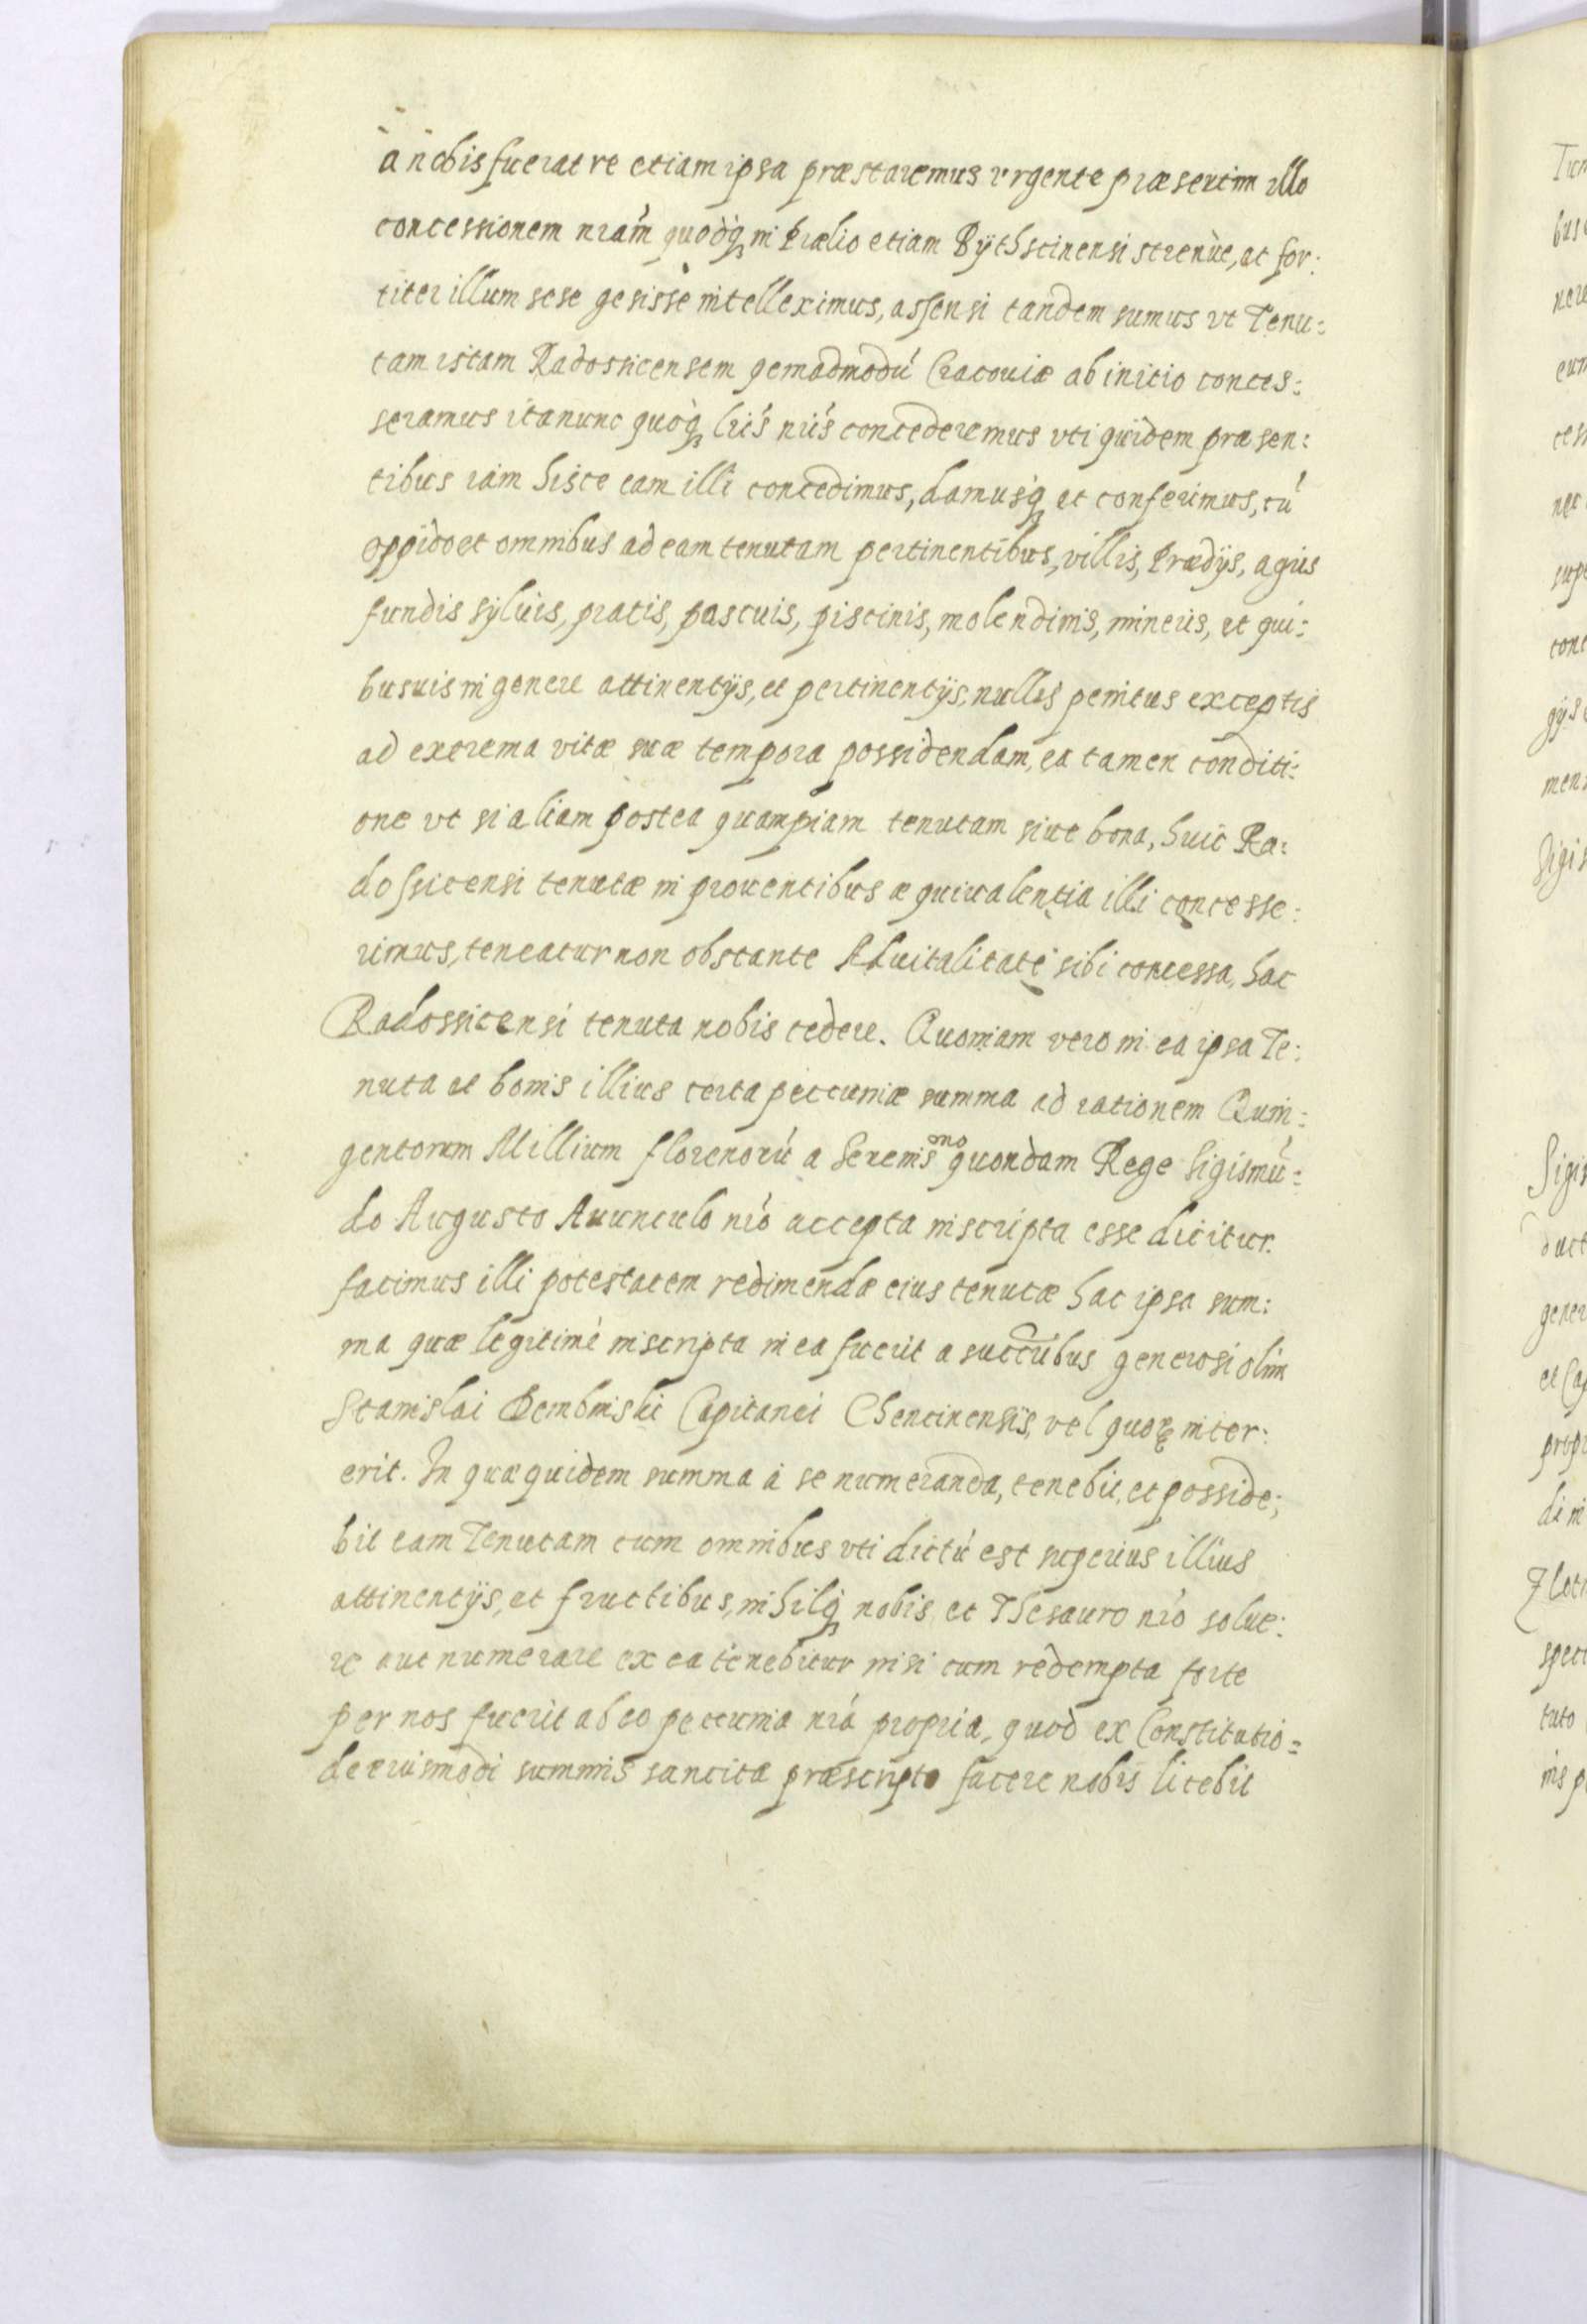 a nobis fuerat re etiam ipsa præstaremus vrgente præsertim illo
concessionem nrãm quodq; in Prælio etiam Bythscinensi strenùe, ac for:
titer illum sese gesisse intelleximus, assensi tandem sumus vt Tenu:
tam istam Radossicensem qemadmodũ Cracouiæ ab initio conces:
seramus ita nunc quoq; lrĩs nrĩs concederemus vti quidem præsen:
tibus iam hisce eam illi concedimus, damusq; et conferimus, cũ
oppido et omnibus ad eam tenutam pertinentibus, villis, Prædijs, agris
fundis syluis, pratis, pascuis, piscinis, molendinis, mineris, et qui:
busuis in genere attinentijs, et pertinentijs, nullis penitus exceptis
ad extrema vitæ suæ tempora possidendam, ea tamen conditi:
one vt si aliam postea quampiam tenutam siue bona, huic Ra:
dossicensi tenutæ in prouentibus æquiualentia illi concesse:
rimus, teneatur non obstante Aduitalitate sibi concessa, hac
Radossicensi tenuta nobis cedere. Quoniam vero in ea ipsa Te:
nuta et bonis illius certa peccuniæ summa ad rationem Quin:
gentorum Millium florenorũ a Serenis mo quondam Rege Sigismũ:
do Augusto Auunculo nrõ accepta inscripta esse dicitur.
facimus illi potestatem redimendæ eius tenutæ hac ipsa sum:
ma quæ legitimè inscripta in ea fuerit a succrũbus generosi olim
Stanislai Dembinski Capitanei Chencinensis, vel quorũ inter:
erit. In qua quidem summa à se numeranda, tenebit, et posside:
bit eam Tenutam cum omnibus vti dictũ est superius illius
attinentijs, et fructibus, nihilq; nobis et Thesauro nrõ solue:
re aut numerare ex ea tenebitur nisi cum redempta forte
per nos fuerit ab eo peccunia nrã propria, quod ex Constitutio=
de eiusmodi summis sancita præscripto facere nobis licebit